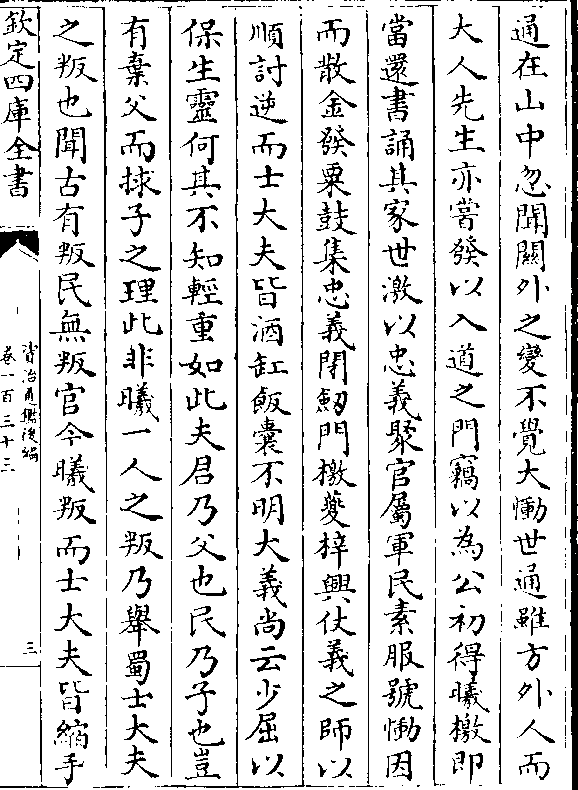 通在山中忽聞闗外之變不覺大慟世通雖方外人而
大人先生亦嘗發以入道之門竊以為公初得曦檄即
當還書誦其家世激以忠義聚官屬軍民素服號慟因
而散金發粟鼓集忠義閉劒門檄夔梓興仗義之師以
順討逆而士大夫皆酒缸飯囊不明大義尚云少屈以
保生靈何其不知輕重如此夫君乃父也民乃子也豈
有棄父而捄子之理此非曦一人之叛乃舉蜀士大夫
之叛也聞古有叛民無叛官今曦叛而士大夫皆縮手
欽定四庫全書
資治通鑑後編
卷一百三十三
三